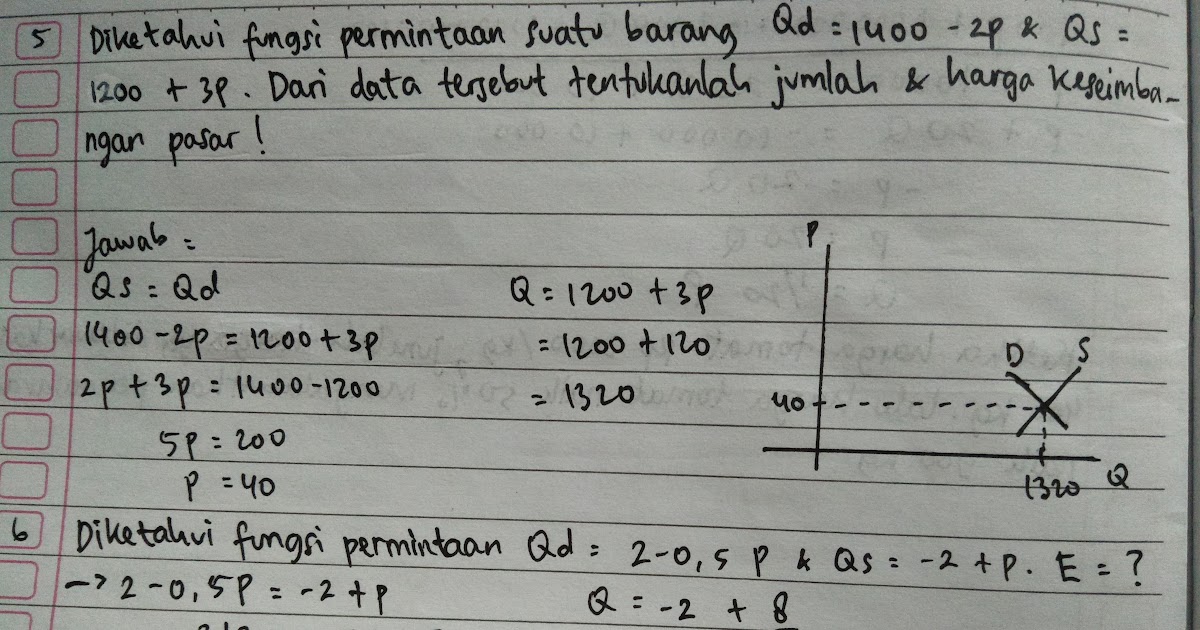 5 Diketahui fungsi permintaan suatu barang Qd = 1400 - 2p & Qs =
1200 + 3p. Dari data tersebut tentukanlah jumlah & harga keseimba-
ngan pasar!
Jawab =
Qs = Qd
1400 - 2p = 1200 + 3p
2p + 3p = 1400 - 1200
5p = 200
p = 40
Q = 1200 + 3p
= 1200 + 120
= 1320
P
D S
40
1320 Q
6 Diketahui fungsi permintaan Qd = 2-0,5 p & Qs = -2 + p. E = ?
→ 2-0,5p = -2 + p
Q = -2 + 8